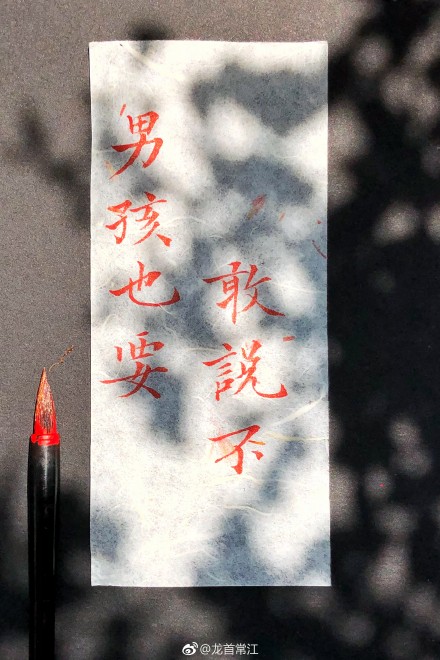 男孩也要
敢説不
@龙首常江